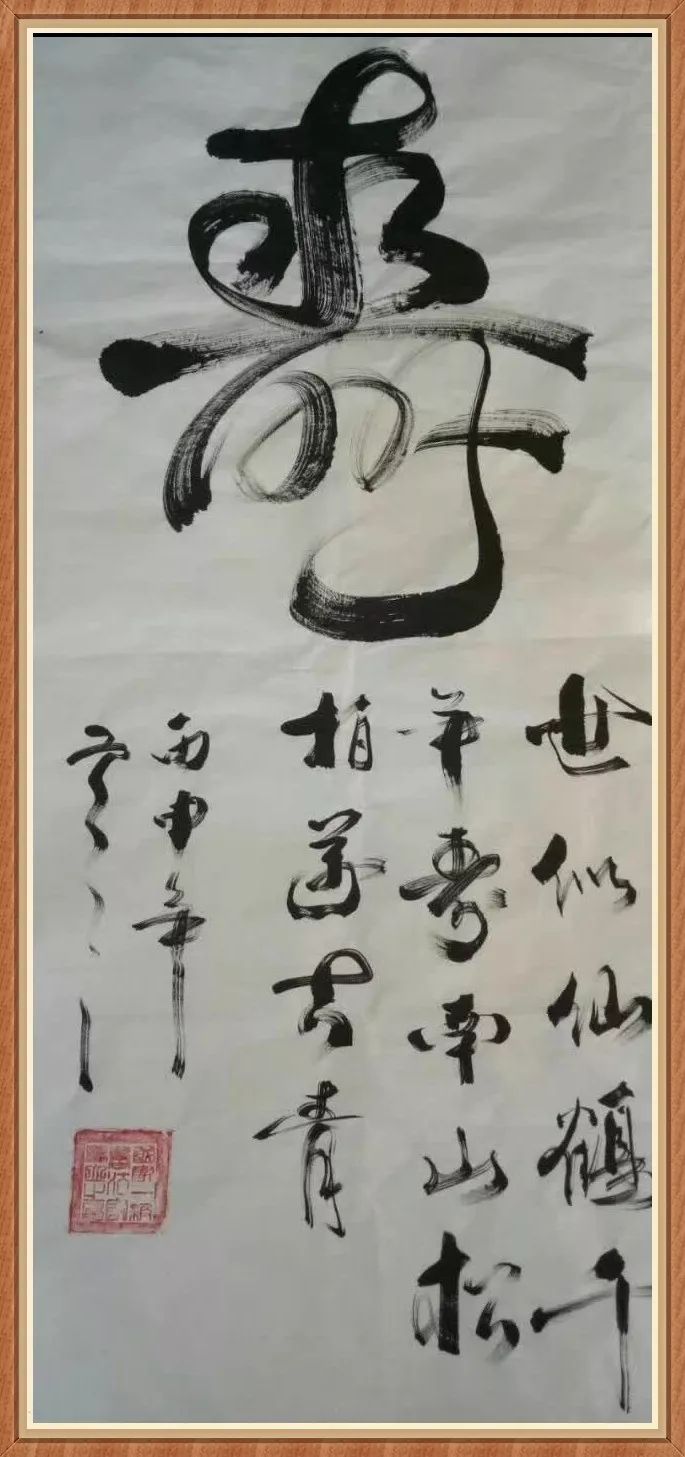 壽
世似仙鶴千
年寿南山松
柏萬古青
丙申年